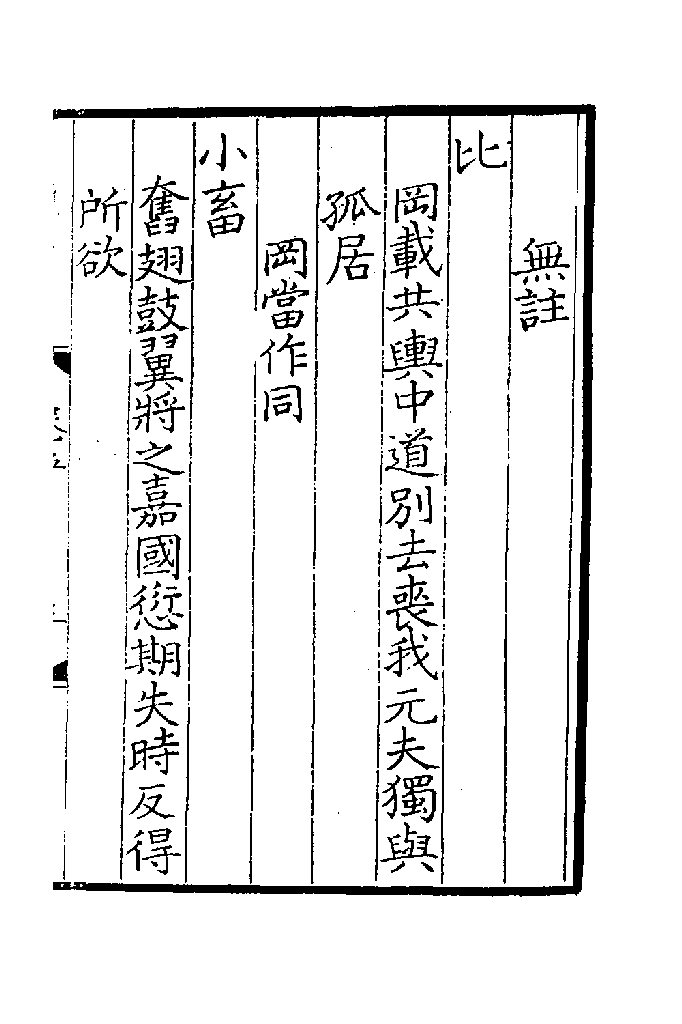 無註
比
岡載共輿中道別去喪我元夫獨與
孤居
岡當作同
小畜
奮翅鼓翼將之嘉國愆期失時反得
所欲